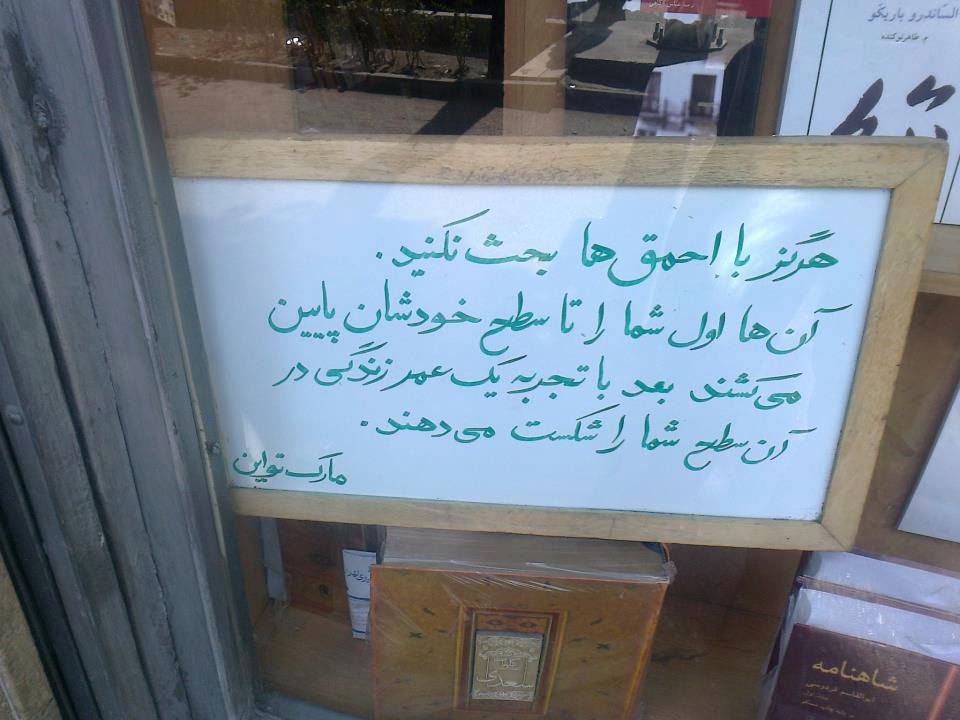 السّاندرو باریکو
م. طاهر نوکنده
هرگز با احمق ها بحث نکنید.
آن ها اول شما را تا سطح خودشان پایین
می کشند بعد با تجربه یک عمر زندگی در
آن سطح شما را شکست می دهند.
مارک تواین
سعدی
شاهنامه
ابوالقاسم فردوسی